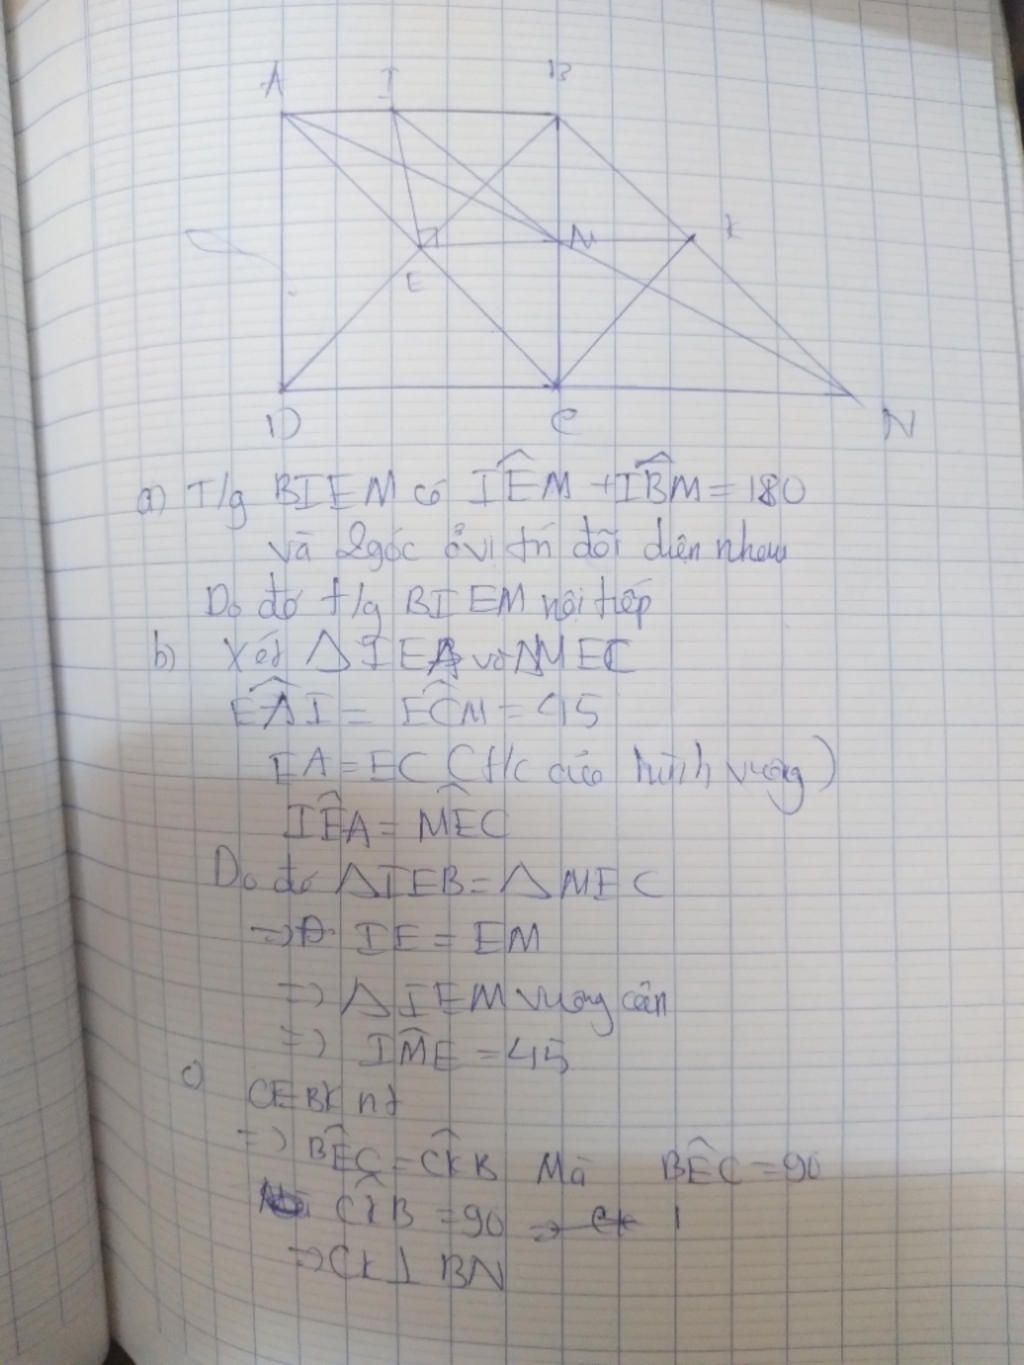 A I B
M K
E
D C N
a) T/g BIEM có IÊM + IB̂M = 180
và 2 góc ở vị trí đối diện nhau
Do đó t/g BIEM nội tiếp
b) Xét △IEA và △MEC
EÂI = EĈM = 45
EA = EC (t/c của hình vuông)
IÊA = MÊC
Do đó △IEB = △MEC
=> IE = EM
=> △IEM vuông cân
=> IM̂E = 45
c) CEBK nt
=> BÊC = CK̂B Mà BÊC = 90
CK̂B = 90
=> CK ⊥ BN